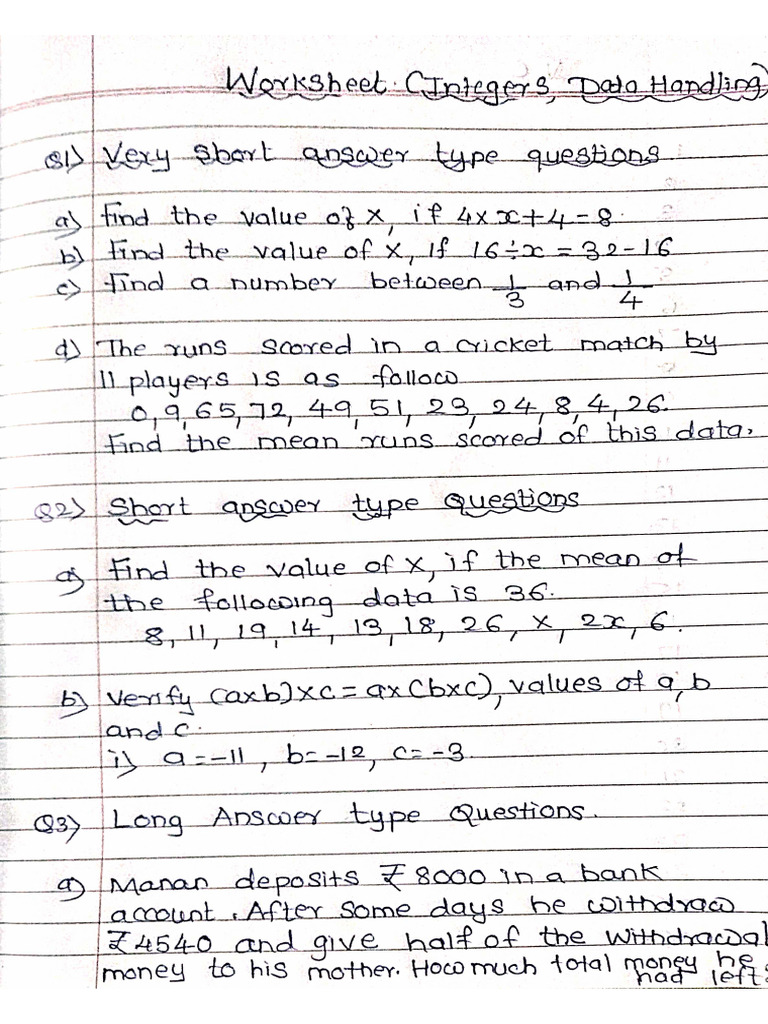 Worksheet (Integers, Data Handling)
Q1) Very Short answer type questions
a) find the value of x, if 4 x x + 4 = 8.
b) find the value of x, If 16 ÷ x = 32 - 16
c) find a number between 1/3 and 1/4
d) The runs scored in a cricket match by
11 players is as follow
0, 9, 65, 72, 49, 51, 23, 24, 8, 4, 26.
find the mean runs scored of this data.
Q2) Short answer type Questions
a) Find the value of x, if the mean of
the following data is 36.
8, 11, 19, 14, 13, 18, 26, x, 2x, 6.
b) Verify (axb) x c = ax (bxc), values of a, b
and c.
i) a = -11, b = -12, c = -3.
Q3) Long Answer type Questions.
a) Manan deposits ₹ 8000 in a bank
account. After some days he withdraw
₹ 4540 and give half of the withdrawal
money to his mother. How much total money he
had left.